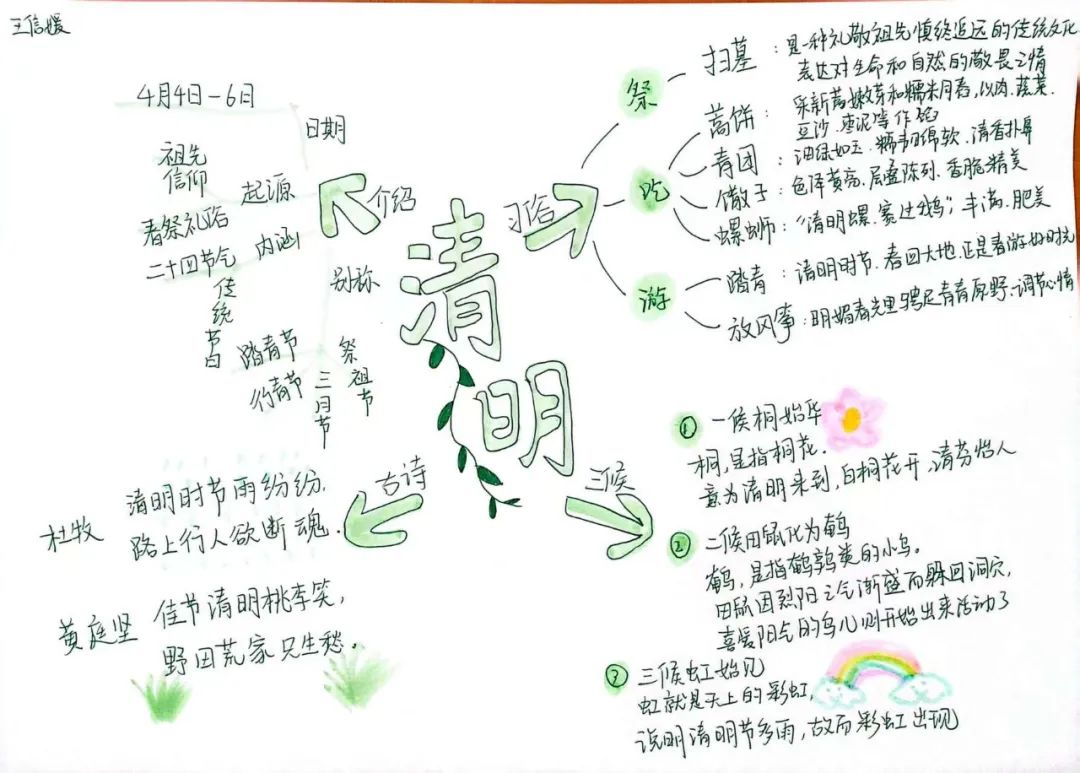 王信媛
清明
介绍
日期
4月4日-6日
起源
祖先
信仰
春祭礼俗
内涵
二十四节气
传统节日
别称
踏青节
行清节
三月节
祭祖节
习俗
祭
扫墓：是一种礼敬祖先慎终追远的传统文化
表达对生命和自然的敬畏之情
吃
蒿饼：采新蒿嫩芽和糯米同舂，以肉、蔬菜、
豆沙、枣泥等作馅
青团：油绿如玉、糯韧绵软、清香扑鼻
馓子：色泽黄亮、层叠陈列、香脆精美
螺蛳："清明螺、赛过鹅"；丰满、肥美
游
踏青：清明时节、春回大地、正是春游好时光
放风筝：明媚春光里骋足青青原野、调节心情
古诗
杜牧
清明时节雨纷纷，
路上行人欲断魂．
黄庭坚
佳节清明桃李笑，
野田荒冢只生愁．
三候
① 一候桐始华
桐，是指桐花．
意为清明来到，白桐花开，清芬怡人
② 二候田鼠化为鹌
鹌，是指鹌鹑类的小鸟。
田鼠因烈阳之气渐盛而躲回洞穴，
喜爱阳气的鸟儿则开始出来活动了
③ 三候虹始见
虹就是天上的彩虹，
说明清明节多雨，故而彩虹出现